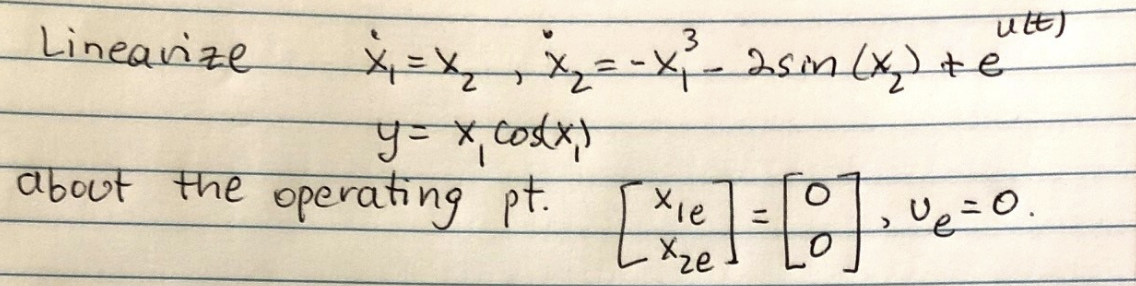 Linearize ẋ₁ = x₂ , ẋ₂ = -x₁³ - 2sin(x₂) + e^{u(t)}
y = x₁ cos(x₁)
about the operating pt. [x₁ₑ; x₂ₑ] = [0; 0], uₑ = 0.